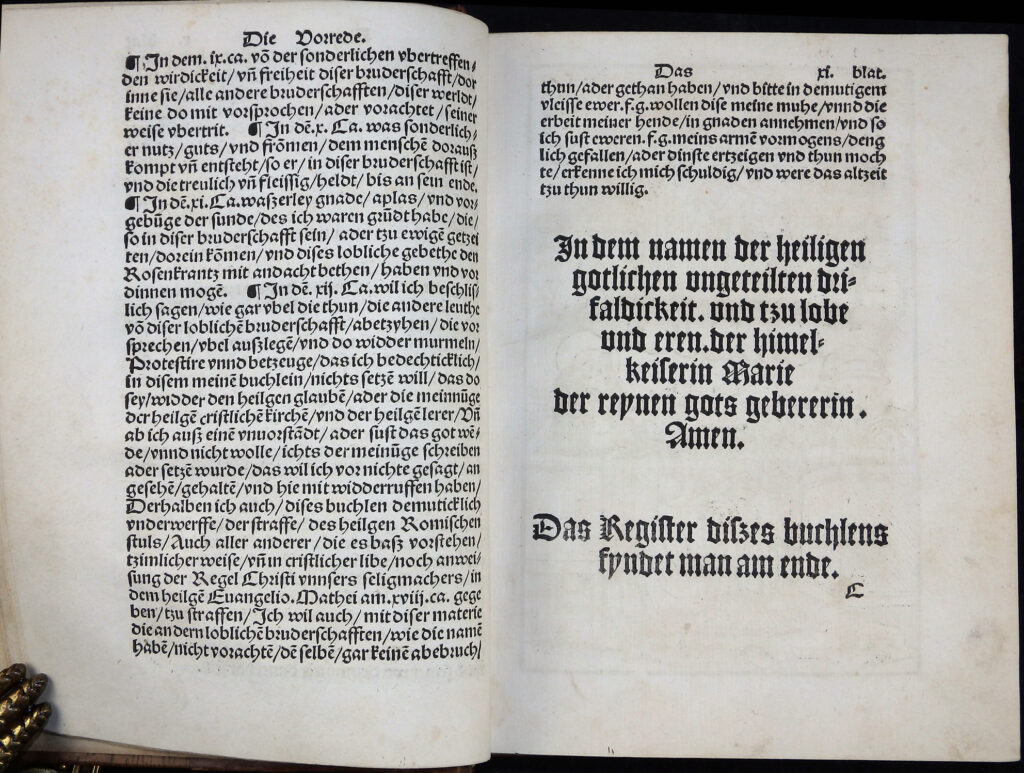 Die Vorrede.
¶ In dem. ix. ca. võ der sonderlichen vbertreffen⸗
den wirdickeit/ vñ freiheit diser bruderschafft/ dor
inne sie/ alle andere bruderschafften/ diser werldt/
keine do mit vorsprochen/ ader vorachtet/ seiner
weise vbertrit. ¶ In dẽ. x. Ca. was sonderlich⸗
er nutz/ guts/ vnd frõmen/ dem menschẽ dorausz
kompt vñ entsteht/ so er/ in diser bruderschafft ist/
vnd die treulich vñ fleissig/ heldt/ bis an sein ende.
¶ In dẽ. xi. Ca. waszerley gnade/ aplas/ vnd vor⸗
gebũge der sunde/ des ich waren grũdt habe/ die/
so in diser bruderschafft sein/ ader tzu ewigẽ getzei
ten/ dorein kõmen/ vnd dises lobliche gebethe den
Rosenkrantz mit andacht bethen/ haben vnd vor
dinnen mogẽ. ¶ In dẽ. xij. Ca. wil ich beschlis⸗
lich sagen/ wie gar vbel die thun/ die andere leuthe
võ diser loblichẽ bruderschafft/ abetzyhen/ die vor
sprechen/ vbel auszlegẽ/ vnd do widder murmeln/
Protestire vnnd betzeuge/ das ich bedechticklich/
in disem meinẽ buchlein/ nichts setzẽ will/ das do
sey/ widder den heilgen glaubẽ/ ader die meinnũge
der heilgẽ cristlichẽ kirchẽ/ vnd der heilgẽ lerer/ Vñ
ab ich ausz einẽ vnuorstãdt/ ader sust das got wẽ⸗
de/ vnnd nicht wolle/ ichts der meinũge schreiben
ader setzẽ wurde/ das wil ich vor nichte gesagt/ an
gesehẽ/ gehaltẽ/ vnd hie mit widderruffen haben/
Derhalben ich auch/ dises buchlen demuticklich
vnderwerffe/ der straffe/ des heilgen Romischen
stuls/ Auch aller anderer/ die es basz vorstehen/
tzimlicher weise/ vñ in cristlicher libe/ noch anwei⸗
sung der Regel Christi vnnsers seligmachers/ in
dem heilgẽ Euangelio. Mathei am. xviij. ca. gege
ben/ tzu straffen/ Ich wil auch/ mit diser materie
die andern loblichẽ bruderschafften/ wie die namẽ
habẽ/ nicht vorachtẽ/ dẽ selbẽ/ gar keinẽ abebruch/
Das xi. blat.
thun/ ader gethan haben/ vnd bitte in demutigem
vleisse ewer. f. g. wollen dise meine muhe/ vnnd die
erbeit meiner hende/ in gnaden annehmen/ vnd so
ich sust eweren. f. g. meins armẽ vormogens/ deng
lich gefallen/ ader dinste ertzeigen vnd thun moch
te/ erkenne ich mich schuldig/ vnd were das altzeit
tzu thun willig.
In dem namen der heiligen
gotlichen vngeteilten dri⸗
faldickeit. vnd tzu lobe
vnd eren. der himel⸗
keiserin Marie
der reynen gots gebererin.
Amen.
Das Register diszes buchlens
fyndet man am ende.
C